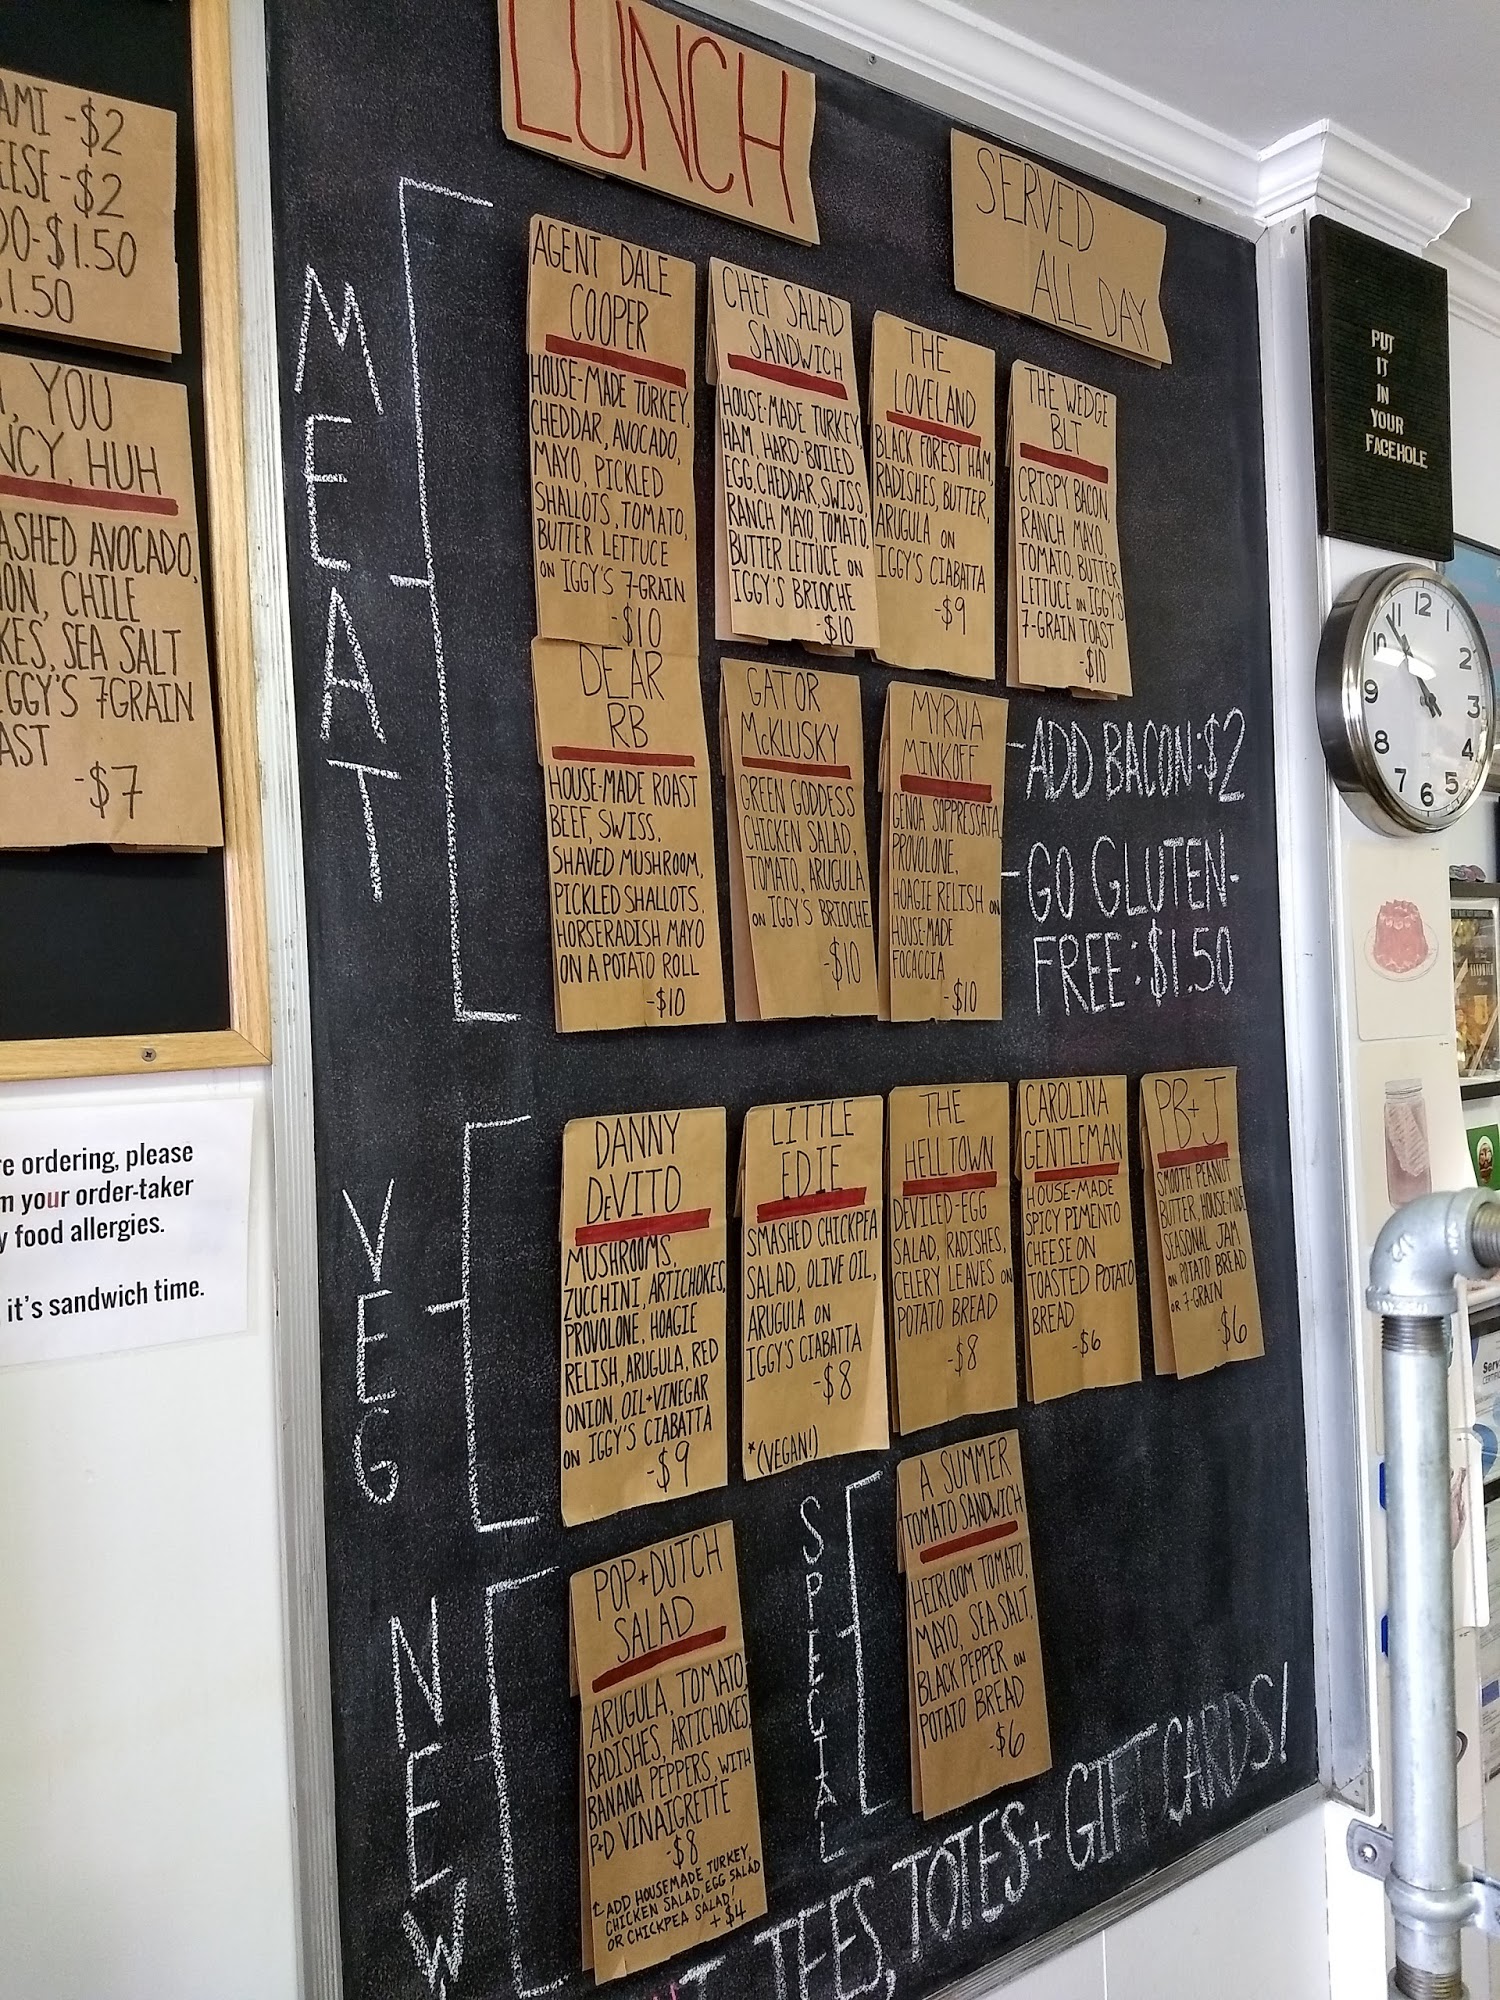 -$2
-$2
-$1.50
YOU
HUH
AVOCADO,
CHILE
SEA SALT
IGGY'S 7GRAIN
-$7
ordering, please
your order-taker
food allergies.
it's sandwich time.
LUNCH
SERVED
ALL DAY
MEAT
AGENT DALE
COOPER
HOUSE-MADE TURKEY,
CHEDDAR, AVOCADO,
MAYO, PICKLED
SHALLOTS, TOMATO,
BUTTER LETTUCE
ON IGGY'S 7-GRAIN
-$10
CHEF SALAD
SANDWICH
HOUSE-MADE TURKEY,
HAM, HARD-BOILED
EGG, CHEDDAR, SWISS,
RANCH MAYO, TOMATO,
BUTTER LETTUCE ON
IGGY'S BRIOCHE
-$10
THE
LOVELAND
BLACK FOREST HAM,
RADISHES, BUTTER,
ARUGULA ON
IGGY'S CIABATTA
-$9
THE WEDGE
BLT
CRISPY BACON,
RANCH MAYO,
TOMATO, BUTTER
LETTUCE ON IGGY'S
7-GRAIN TOAST
-$10
DEAR
RB
HOUSE-MADE ROAST
BEEF, SWISS,
SHAVED MUSHROOM,
PICKLED SHALLOTS,
HORSERADISH MAYO
ON A POTATO ROLL
-$10
GATOR
McKLUSKY
GREEN GODDESS
CHICKEN SALAD,
TOMATO, ARUGULA
ON IGGY'S BRIOCHE
-$10
MYRNA
MINKOFF
GENOA SOPPRESSATA,
PROVOLONE,
HOAGIE RELISH ON
HOUSE-MADE
FOCACCIA
-$10
-ADD BACON:$2
-GO GLUTEN-
FREE:$1.50
VEG
DANNY
DeVITO
MUSHROOMS,
ZUCCHINI, ARTICHOKES,
PROVOLONE, HOAGIE
RELISH, ARUGULA, RED
ONION, OIL+VINEGAR
ON IGGY'S CIABATTA
-$9
LITTLE
EDIE
SMASHED CHICKPEA
SALAD, OLIVE OIL,
ARUGULA ON
IGGY'S CIABATTA
-$8
*(VEGAN!)
THE
HELLTOWN
DEVILED-EGG
SALAD, RADISHES,
CELERY LEAVES ON
POTATO BREAD
-$8
CAROLINA
GENTLEMAN
HOUSE-MADE
SPICY PIMENTO
CHEESE ON
TOASTED POTATO
BREAD
-$6
PB+J
SMOOTH PEANUT
BUTTER, HOUSE-MADE
SEASONAL JAM
ON POTATO BREAD
OR 7-GRAIN
-$6
NEW
POP+DUTCH
SALAD
ARUGULA, TOMATO,
RADISHES, ARTICHOKES,
BANANA PEPPERS, WITH
P+D VINAIGRETTE
-$8
ADD HOUSEMADE TURKEY,
CHICKEN SALAD, EGG SALAD
OR CHICKPEA SALAD!
+$4
SPECIAL
A SUMMER
TOMATO SANDWICH
HEIRLOOM TOMATO,
MAYO, SEA SALT,
BLACK PEPPER ON
POTATO BREAD
-$6
TEES, TOTES + GIFT CARDS!
PUT
IT
IN
YOUR
FACEHOLE
12
2
3
4
5
6
7
8
9
10